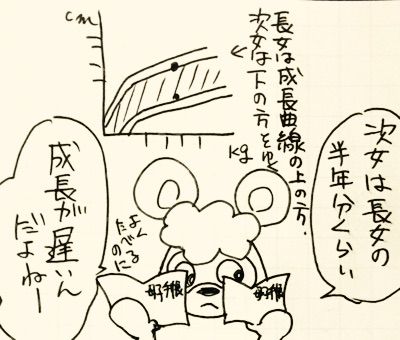 cm
kg
長女は成長曲線の上の方、
次女は下の方をゆく
次女は長女の
半年分くらい
成長が遅いん
だよねー
よく
たべ
のにる
母子手帳
母子手帳